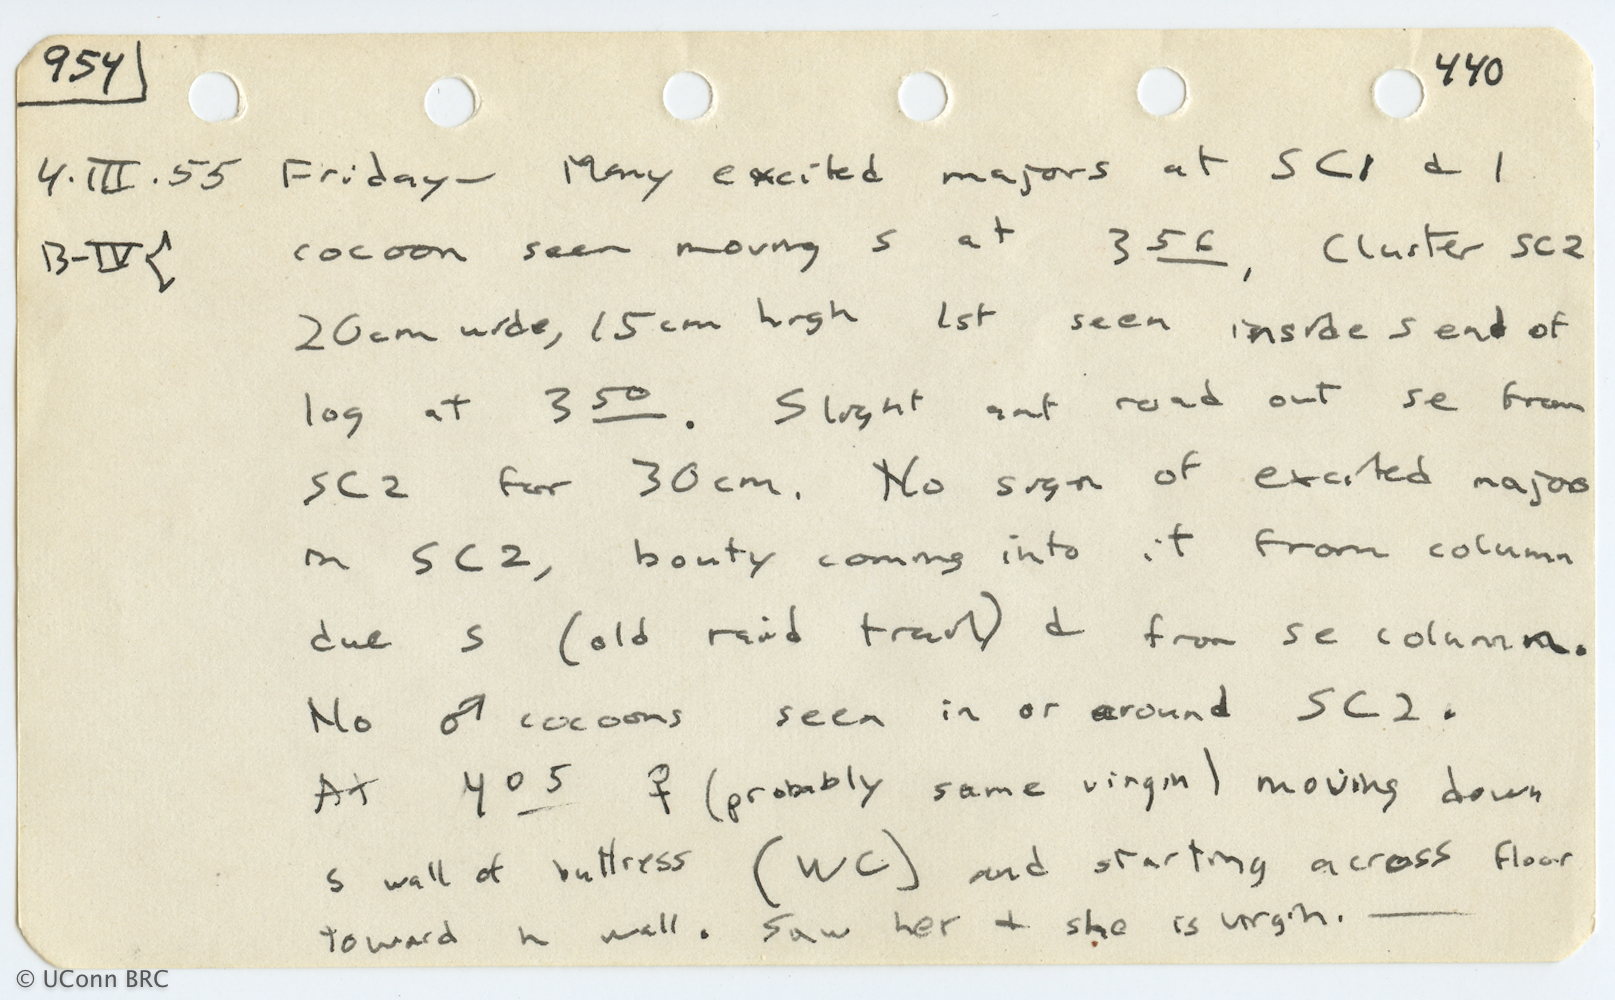 954
440
4.III.55 Friday— Many excited majors at SC1 & 1
B-IV{ cocoon seen moving s at 3 56, Cluster SC2
20cm wide, 15cm high 1st seen inside s end of
log at 3 50. Slight ant road out se from
SC2 for 30cm. No sign of excited majors
in SC2, bouty coming into it from column
due s (old raid trail) & from se column.
No ♂ cocoons seen in or around SC2.
At 4 05 ♀ (probably same virgin) moving down
s wall of buttress (WC) and starting across floor
toward n wall. Saw her + she is virgin. —
© UConn BRC